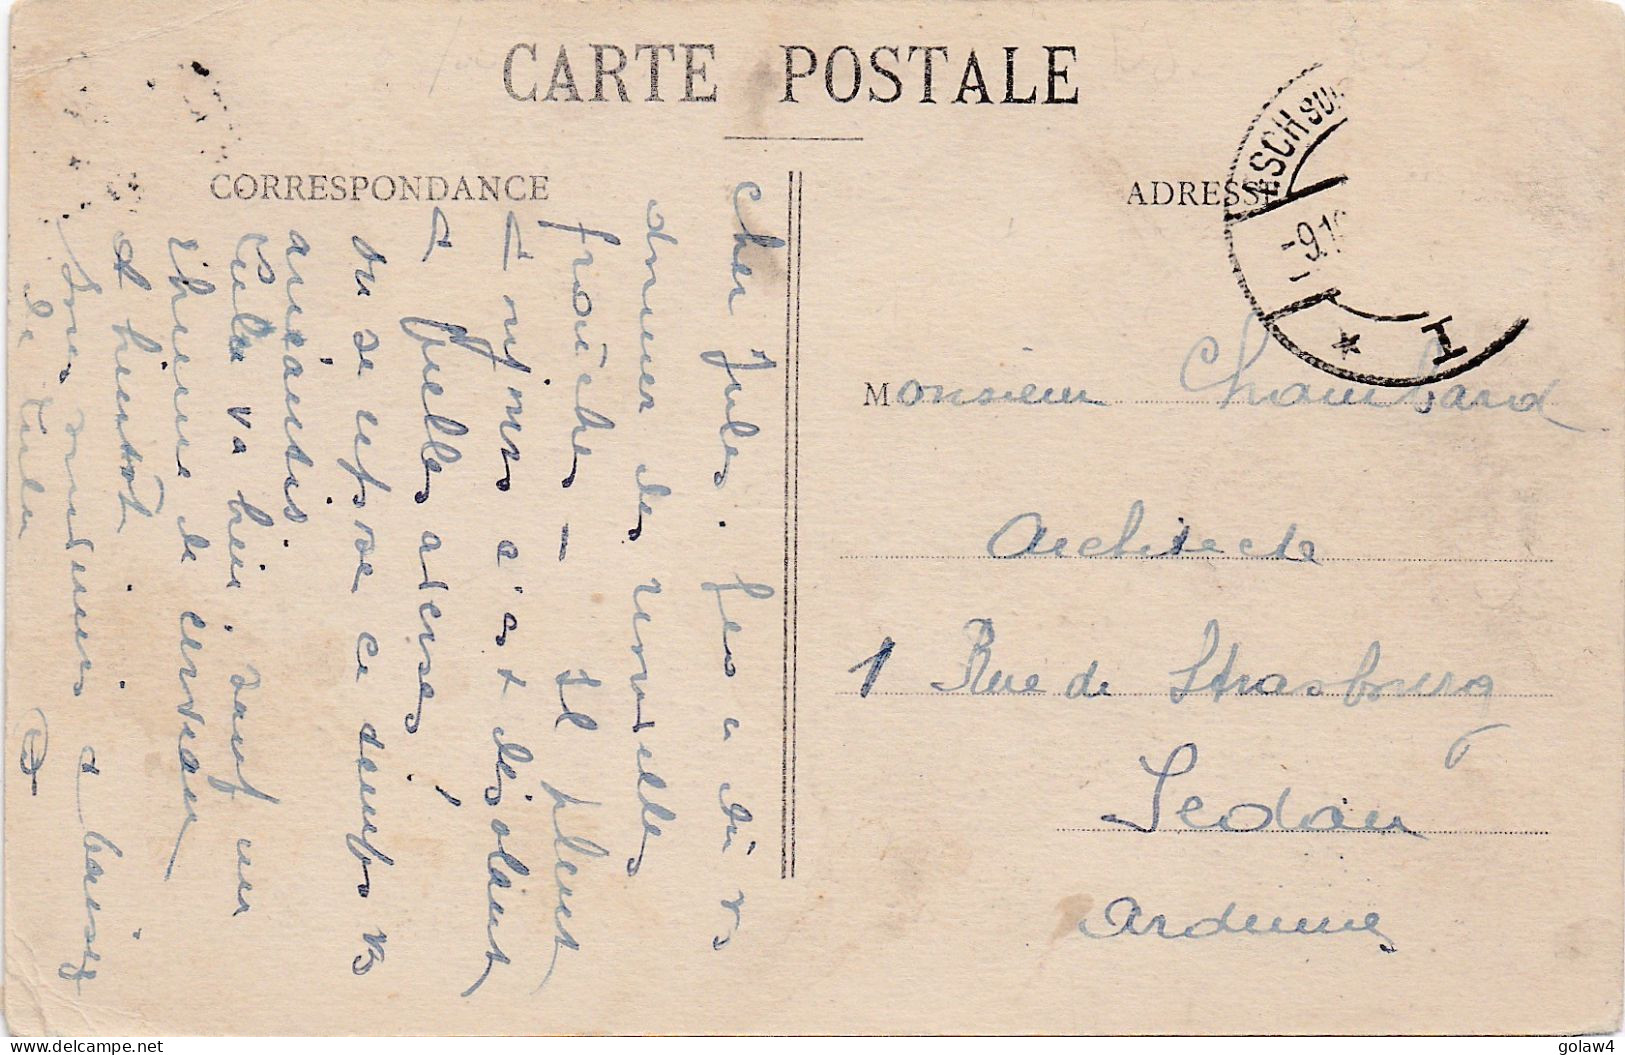 CARTE POSTALE
CORRESPONDANCE
ADRESSE
ESCH SUR
-9.1
H
cher Jules. Jes a dû vs
donner des nouvelles
fraîches - Il pleut
toujours c'est désolant
quelles averses,
on se repose ce temps vs
anéantis
Lulu va bien, sauf un
rhume de cerveau
A bientôt
bons souvenirs & baisers
de Lulu
Monsieur Chambard
Architecte
1 Rue de Strasbourg
Sedan
Ardennes
delcampe.net
golaw4